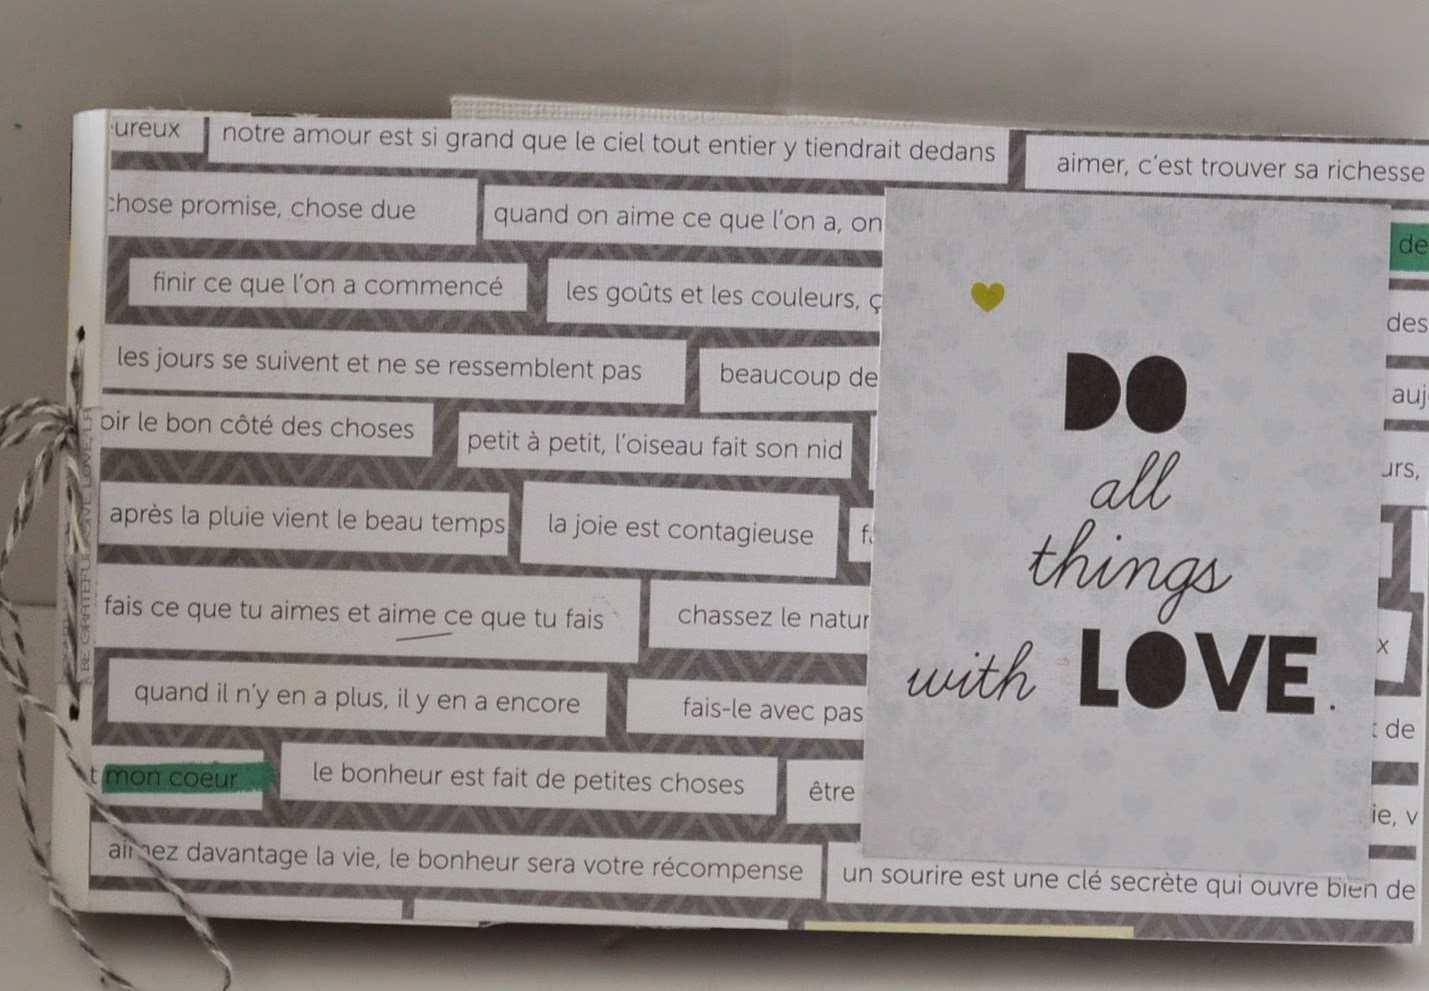 notre amour est si grand que le ciel tout entier y tiendrait dedans
aimer, c'est trouver sa richesse
chose promise, chose due
quand on aime ce que l'on a, on
de
finir ce que l'on a commencé
les goûts et les couleurs, ç
des
les jours se suivent et ne se ressemblent pas
beaucoup de
auj
oir le bon côté des choses
petit à petit, l'oiseau fait son nid
urs,
après la pluie vient le beau temps
la joie est contagieuse
fais ce que tu aimes et aime ce que tu fais
chassez le natur
x
quand il n'y en a plus, il y en a encore
fais-le avec pas
t de
t mon coeur
le bonheur est fait de petites choses
être
ie, v
aimez davantage la vie, le bonheur sera votre récompense
un sourire est une clé secrète qui ouvre bien de
DO
all
things
with LOVE.
BE GRATEFUL, GIVE LOVE, LA